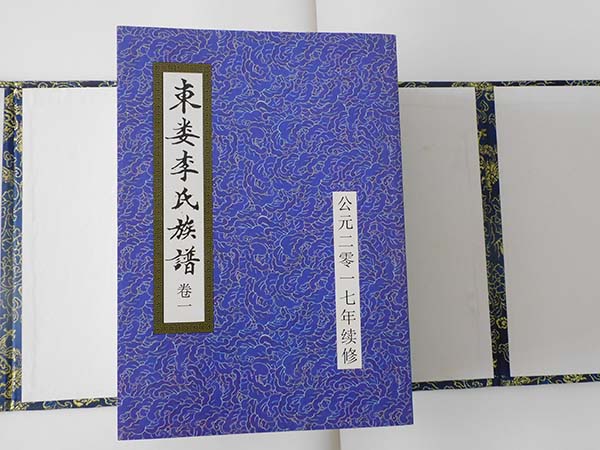 東娄李氏族譜
卷一
公元二零一七年续修